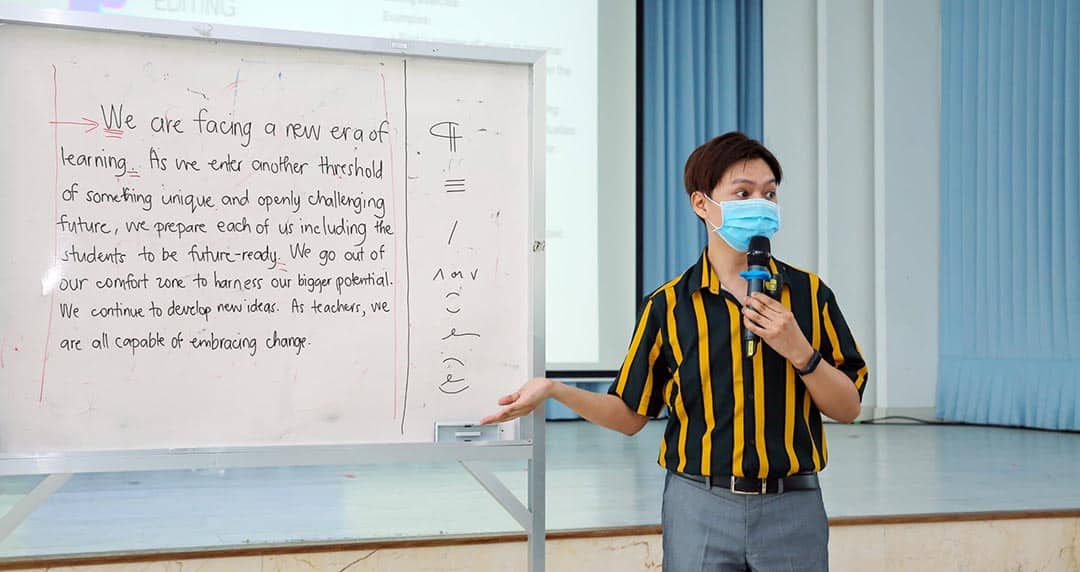 EDITING
We are facing a new era of
learning. As we enter another threshold
of something unique and openly challenging
future, we prepare each of us including the
students to be future-ready. We go out of
our comfort zone to harness our bigger potential.
We continue to develop new ideas. As teachers, we
are all capable of embracing change.
¶
≡
/
∧ or ∨